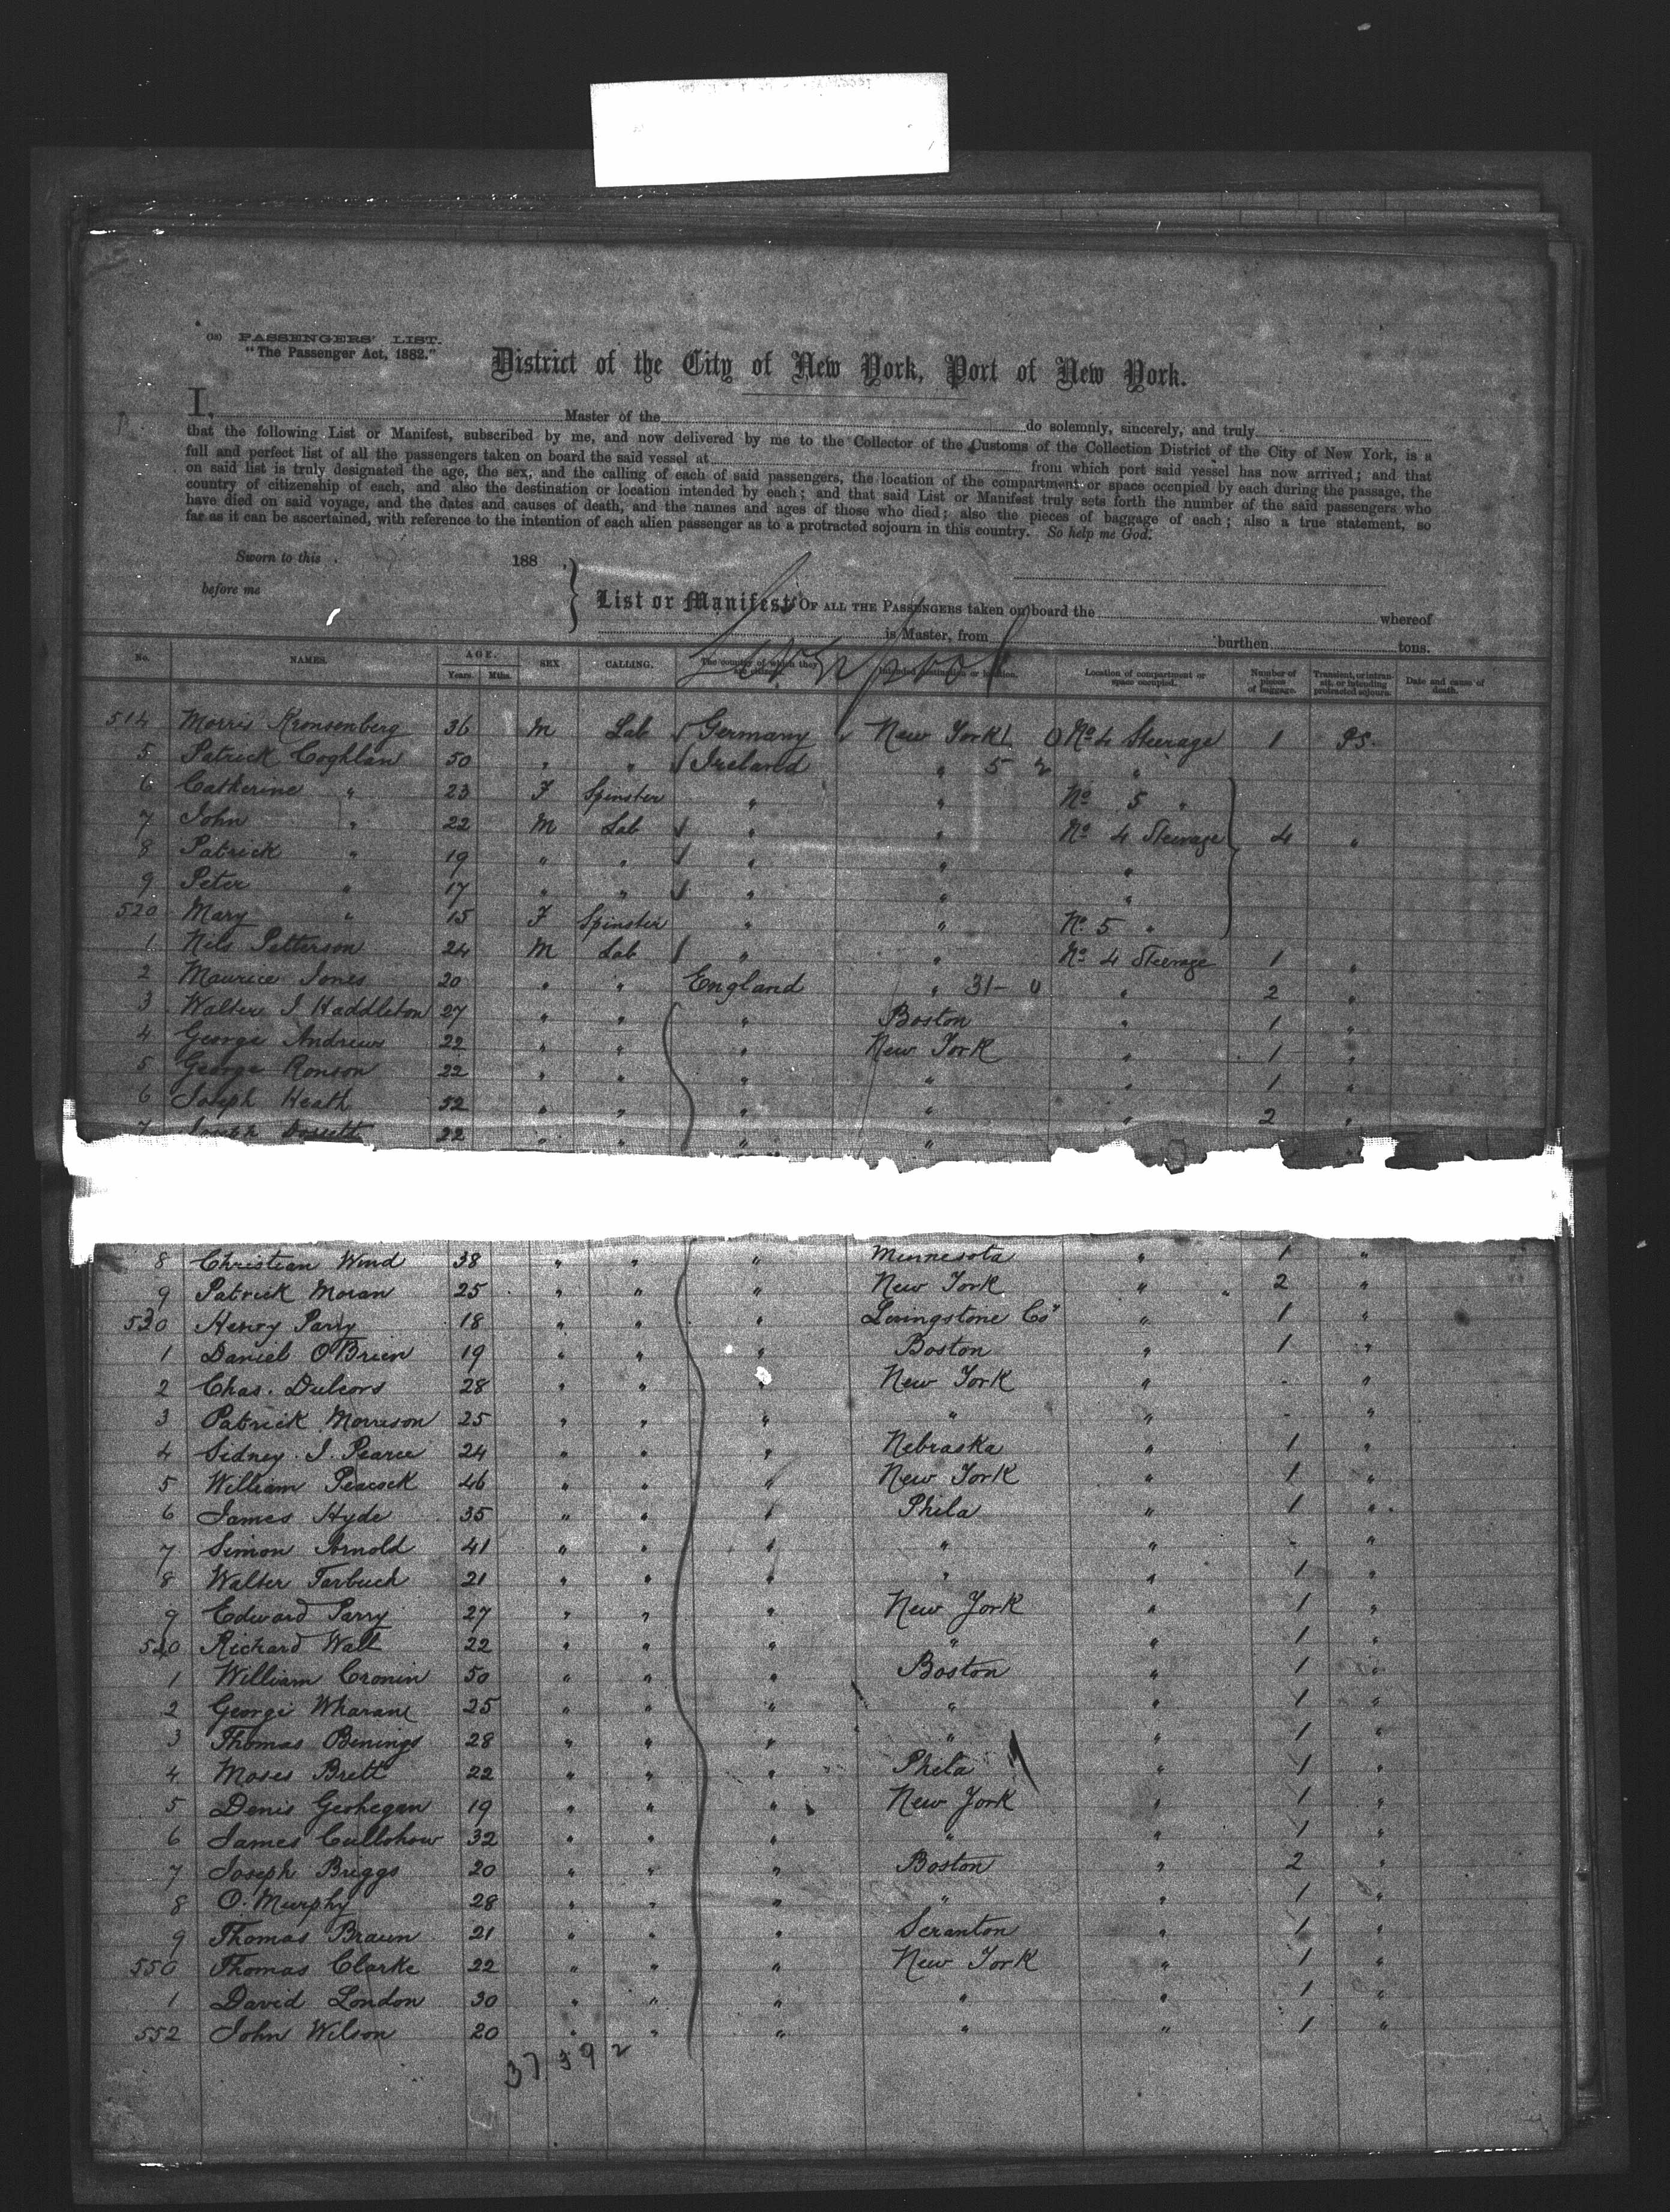 (18) PASSENGERS' LIST.
"The Passenger Act, 1882."
District of the City of New York, Port of New York.
I, Master of the do solemnly, sincerely, and truly
that the following List or Manifest, subscribed by me, and now delivered by me to the Collector of the Customs of the Collection District of the City of New York, is a
full and perfect list of all the passengers taken on board the said vessel at from which port said vessel has now arrived; and that
on said list is truly designated the age, the sex, and the calling of each of said passengers, the location of the compartment or space occupied by each during the passage, the
country of citizenship of each, and also the destination or location intended by each; and that said List or Manifest truly sets forth the number of the said passengers who
have died on said voyage, and the dates and causes of death, and the names and ages of those who died; also the pieces of baggage of each; also a true statement, so
far as it can be ascertained, with reference to the intention of each alien passenger as to a protracted sojourn in this country. So help me God.
Sworn to this 188
before me
List or Manifest OF ALL THE PASSENGERS taken on board the whereof
is Master, from burthen tons.
Liverpool
No. NAMES. AGE. Years. Mths. SEX CALLING. The country of which they Intended destination or location. Location of compartment or space occupied. Number of pieces of baggage. Transient, or intransit, or intending protracted sojourn. Date and cause of death.
514 Morris Kronsenberg 36 M Lab Germany New York No 4 Steerage 1 P.S.
5 Patrick Coghlan 50 " " Ireland " 5 2 "
6 Catherine " 23 F Spinster " " No 5 "
7 John " 22 M Lab " " No 4 Steerage 4 "
8 Patrick " 19 " " " " "
9 Peter " 17 " " " " "
520 Mary " 15 F Spinster " " No 5 "
1 Nils Petterson 24 M Lab " " No 4 Steerage 1 "
2 Maurice Jones 20 " " England " 31- 0 " 2 "
3 Walter J Haddleton 27 " " " Boston " 1 "
4 George Andrews 22 " " " New York " 1 "
5 George Ronson 22 " " " " " 1 "
6 Joseph Heath 52 " " " " " 2 "
7 Joseph 22 " " " "
8 Christian Wind 38 " " " Minnesota " 1 "
9 Patrick Moran 25 " " " New York " 2 "
530 Henry Parry 18 " " " Livingstone Co " 1 "
1 Daniel O'Brien 19 " " " Boston " 1 "
2 Chas. 28 " " " New York " - "
3 Patrick Morrison 25 " " " " " - "
4 Sidney J. Pearce 24 " " " Nebraska " 1 "
5 William Peacock 46 " " " New York " 1 "
6 James Hyde 35 " " " Phila " 1 "
7 Simon Arnold 41 " " " " " - "
8 Walter Terbuch 21 " " " " " 1 "
9 Edward Parry 27 " " " New York " 1 "
540 Richard Watt 22 " " " " " 1 "
1 William Cronin 50 " " " Boston " 1 "
2 George 25 " " " " " 1 "
3 Thomas Benings 28 " " " " " 1 "
4 Moses Brett 22 " " " Phila " 1 "
5 Denis Geohegan 19 " " " New York " 1 "
6 James 32 " " " " " 1 "
7 Joseph Briggs 20 " " " Boston " 2 "
8 O. Murphy 28 " " " " " 1 "
9 Thomas Braun 21 " " " Scranton " 1 "
550 Thomas Clarke 22 " " " New York " 1 "
1 David London 30 " " " " " 1 "
552 John Wilson 20 " " " " " 1 "
37 39 2